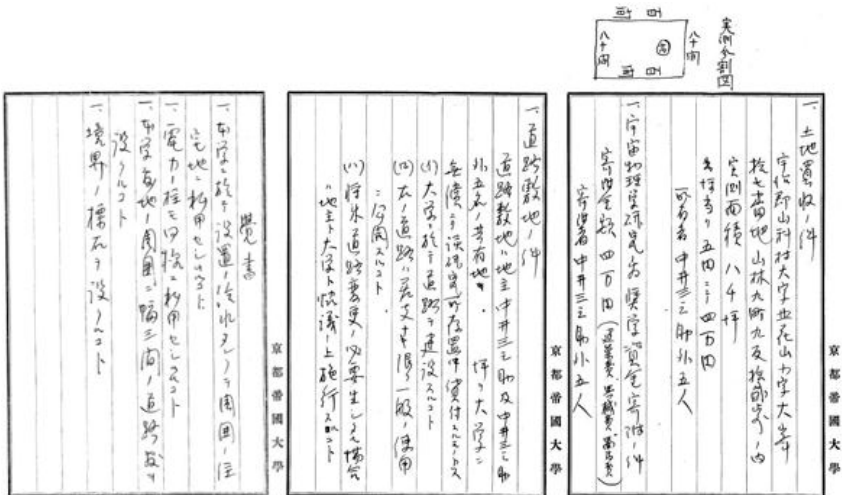 実測分割図
八十間
八十間
一、土地買収ノ件
宇治郡山科村大字北花山小字大峰
拾七番地山林九町九反 ノ内
実測面積 八千坪
坪当リ 五円ニテ四万円
所有者 中井三之助外五人
一、宇宙物理学研究ノ為 奨学資金寄附ノ件
寄附金額 四万円
寄附者 中井三之助外五人
京都帝國大學
一、道路敷地ノ件
道路敷地ハ地主中井三之助及中井三之助
外五名ノ共有地 坪ヲ大学ニ
無償ニテ 研究所存置中貸付スルコト
(イ)大学ニ於テ道路ヲ建設スルコト
(ロ)右ノ道路ハ 限リ一般ノ使用
ニ公開スルコト
(ハ)将来道路変更ノ必要生シタル場合
ハ地主ト大学ト協議ノ上施行スルコト
京都帝國大學
覺書
一、本学ニ於テ設置ノ タンクヲ周囲ノ住
宅地ニ利用セシムルコト
一、電力ノ柱モ同様ニ利用セシムルコト
一、本学敷地ノ周囲ニ幅三間ノ道路敷ヲ
設クルコト
一、境界ノ標石ヲ設クルコト
京都帝國大學